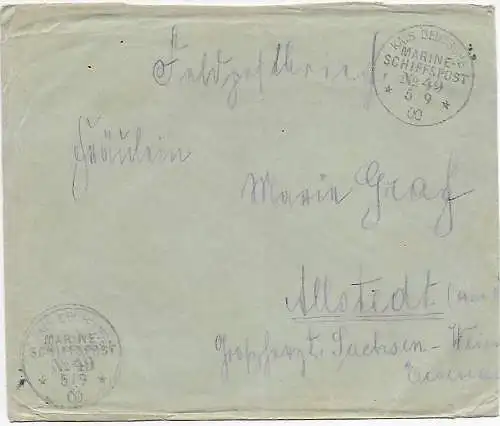 Feldpostbrief.
KAIS. DEUTSCHE
MARINE-
SCHIFFSPOST
No 49
* 5 9 *
00
Fräulein
Marie Graf
Allstedt
Großherzgt. Sachsen-Weim
MARINE-
SCHIFFSPOST
No 49
* 5/9 *
00